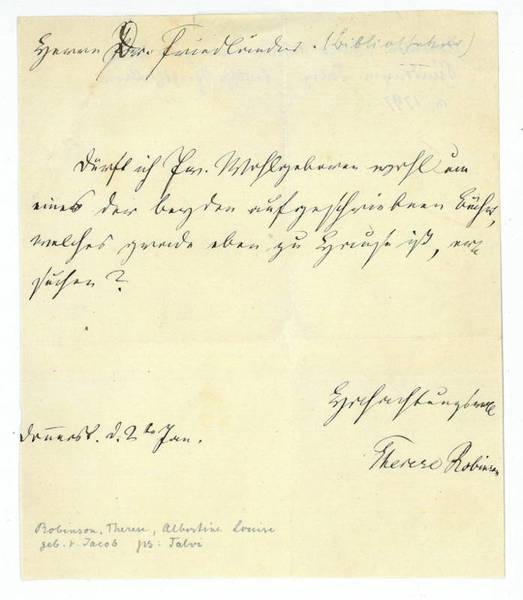 Herrn Dr. Friedländer. (Bibliothekar)
Dürft ich Ew. Wohlgeboren wohl um
eines der beyden aufgeschriebnen Bücher,
welches grade eben zu Hause ist, er=
suchen?
Hochachtungsvoll
Therese Robinson
Donnerst. d. 2te Jan.
Robinson, Therese, Albertine Louise
geb. v. Jacob ps: Talvi